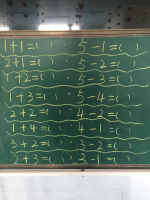 1+1=( ) 5-1=( )
2+1=( ) 5-2=( )
1+2=( ) 5-3=( )
1+3=( ) 5-4=( )
2+2=( ) 4-2=( )
1+4=( ) 4-1=( )
3+2=( ) 3-2=( )
+3=( ) 3-1=( )